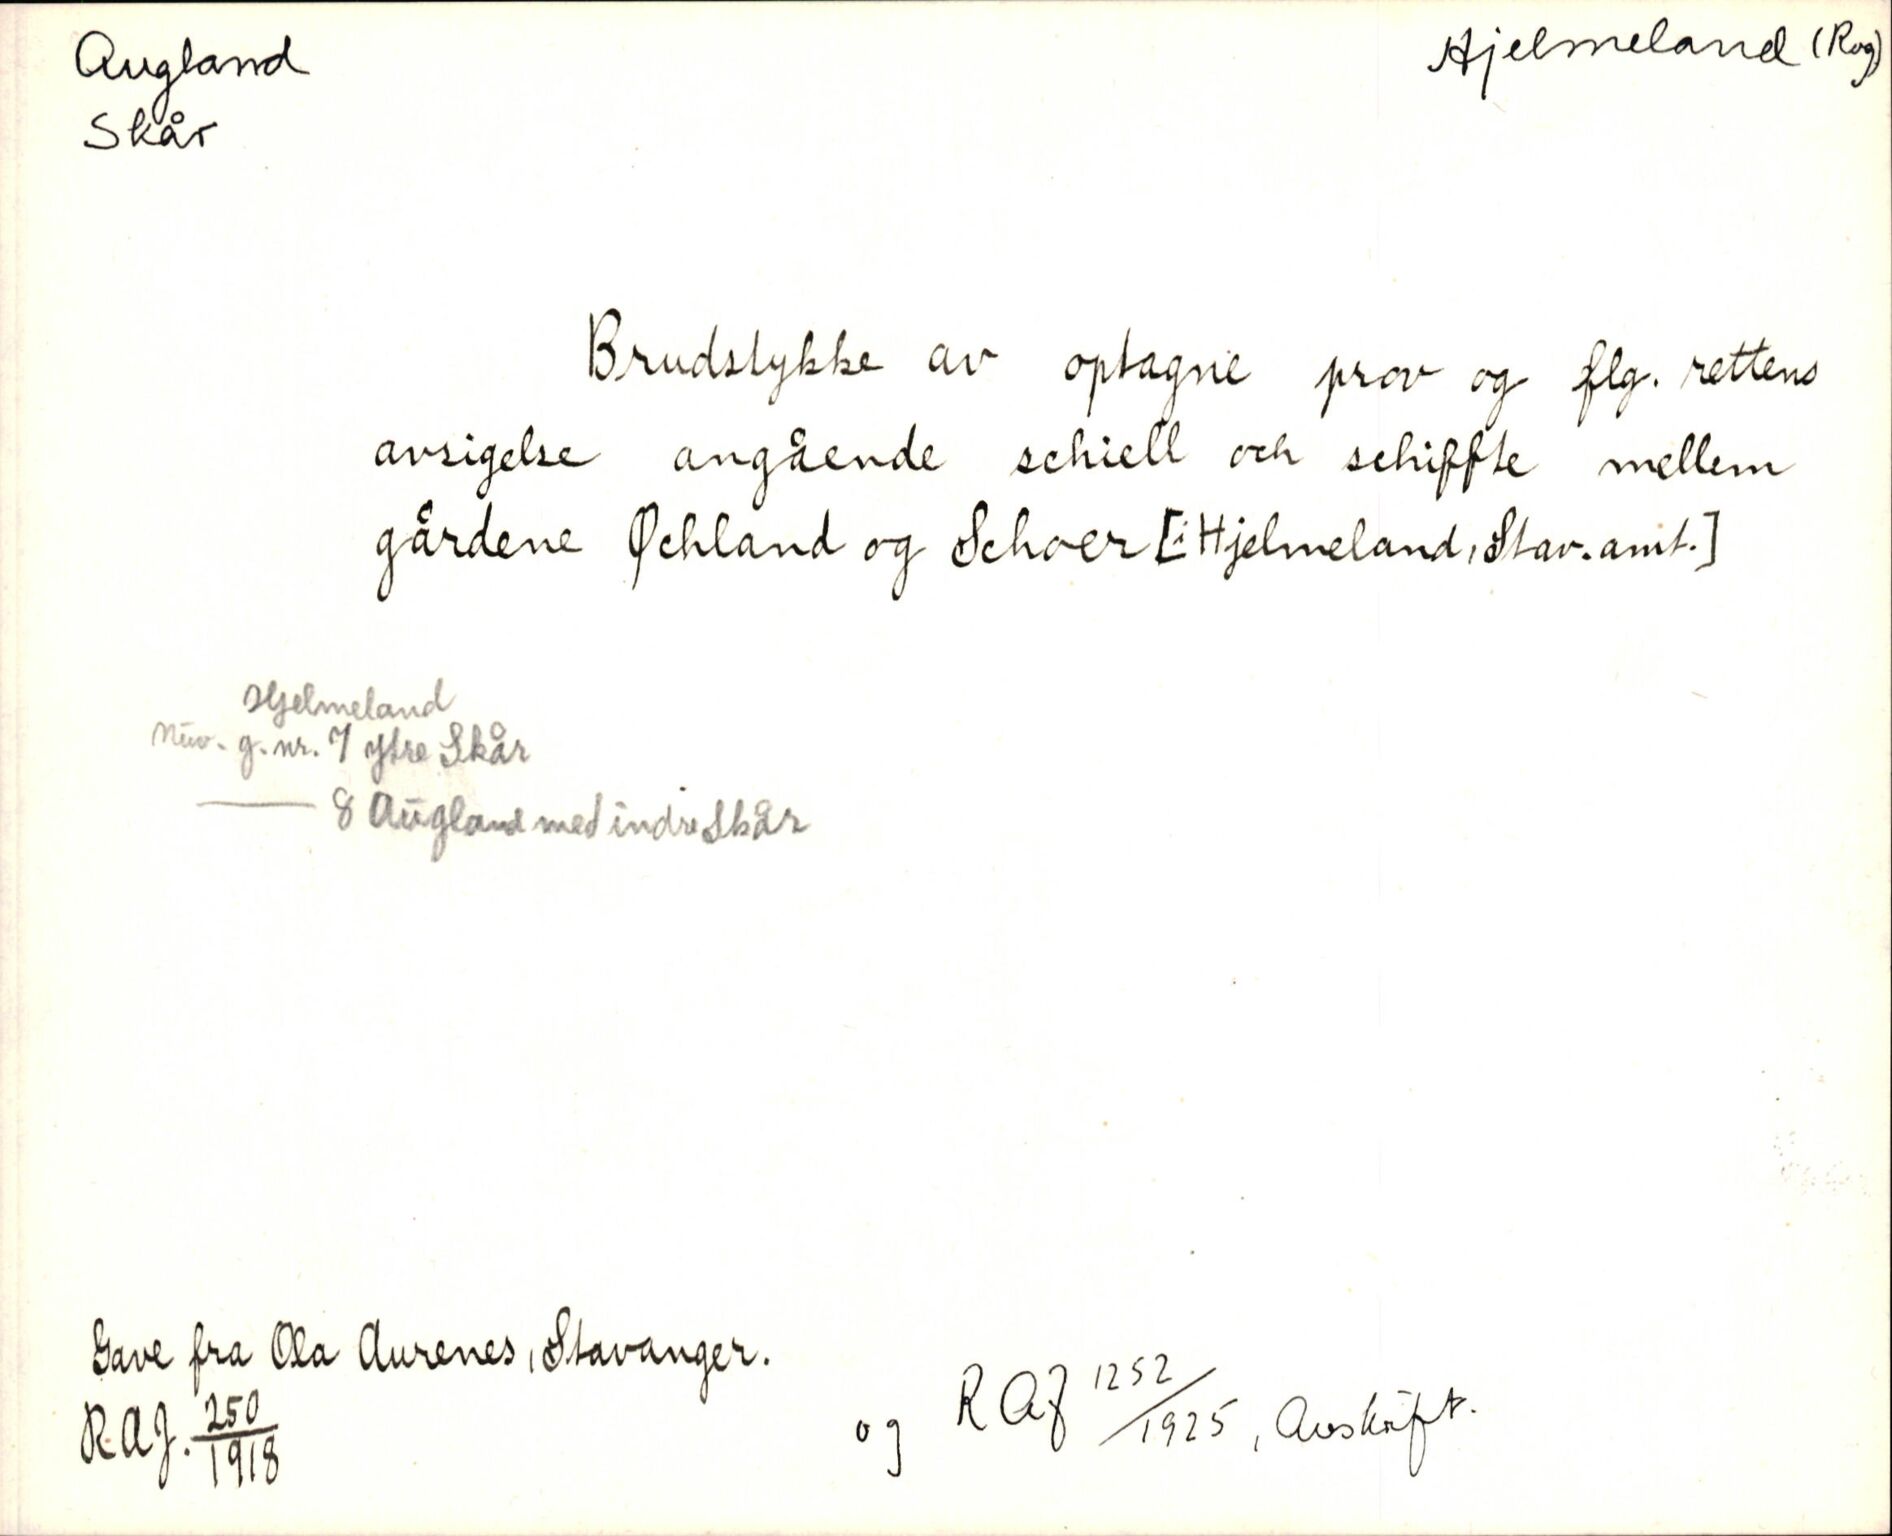 Augland
Hjelmeland (Rog)
Skår
Brudstykke av optagne prov og flg. rettens
avsigelse angående schiell och schiffte mellem
gårdene Øchland og Schoer [i Hjelmeland, Stav. amt.]
Hjelmeland
Nuv. g. nr. 7 ytre Skår
——— 8 Augland med indre Skår
Gave fra Ola Aurenes, Stavanger.
R.A.J. 250/1918
og RAJ 1252/1925, Avskrift.